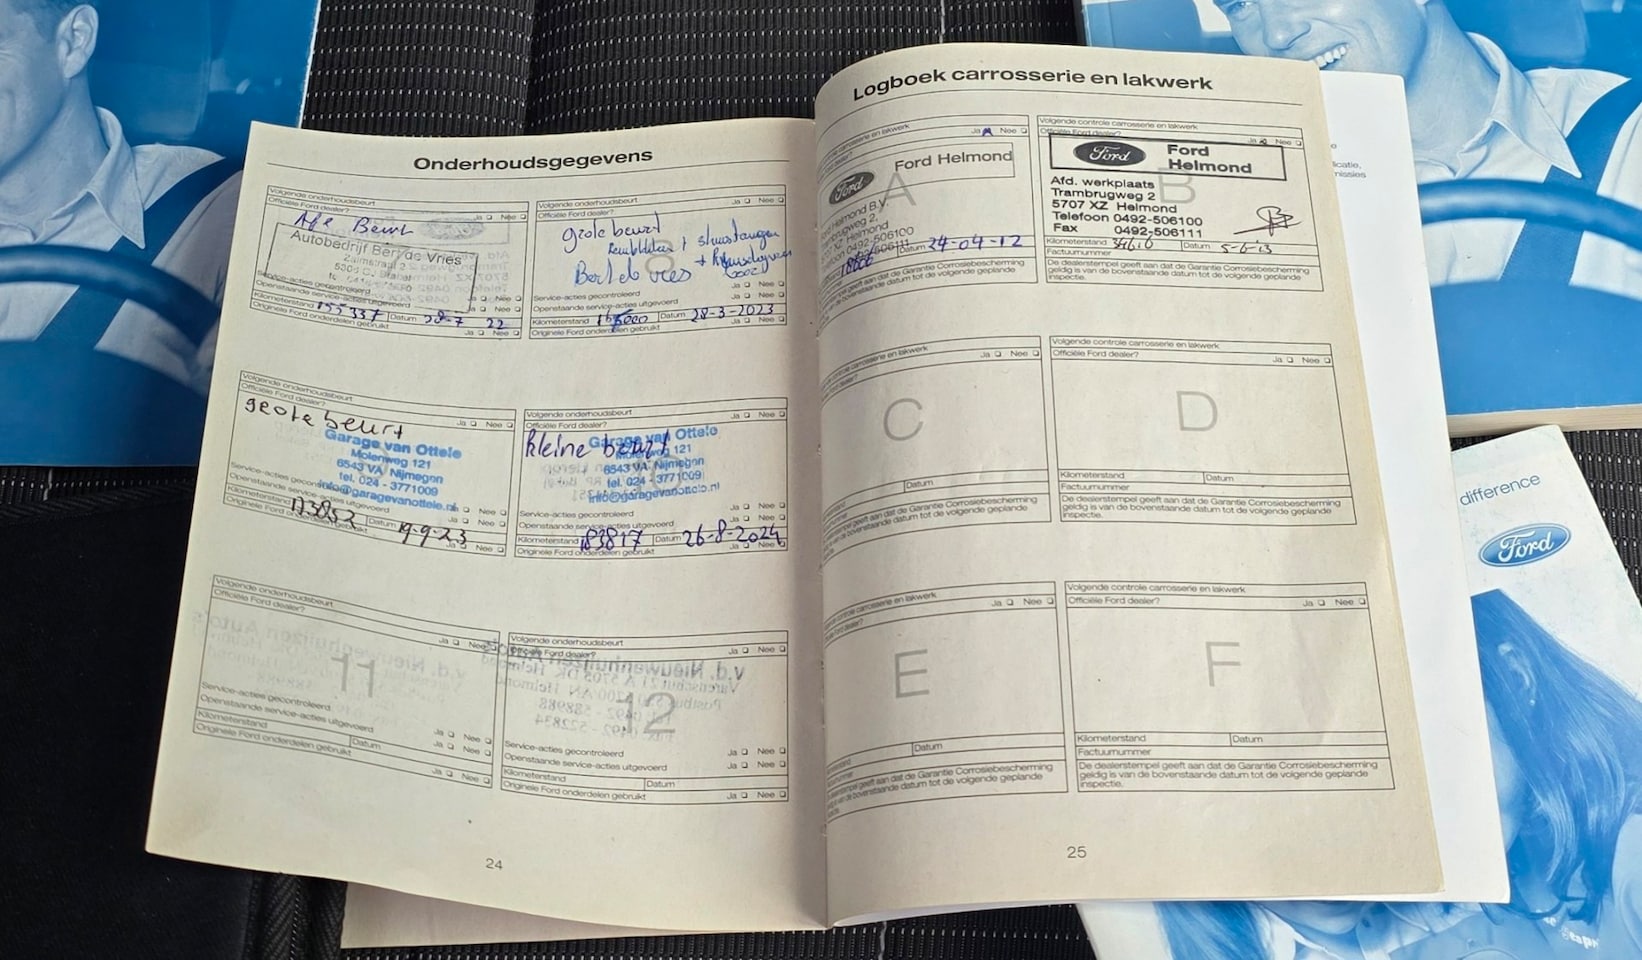 Onderhoudsgegevens
Volgende onderhoudsbeurt
Officiële Ford dealer?
Ja Nee
Beurt
Autobedrijf Bert de Vries
Service-acties gecontroleerd
Ja Nee
Openstaande service-acties uitgevoerd
Ja Nee
Kilometerstand 155337 Datum 28-7 22
Originele Ford onderdelen gebruikt
Ja Nee
Volgende onderhoudsbeurt
Officiële Ford dealer?
Ja Nee
grote beurt
Bert de vries
Service-acties gecontroleerd
Ja Nee
Openstaande service-acties uitgevoerd
Ja Nee
Kilometerstand Datum 28-3-2023
Originele Ford onderdelen gebruikt
Ja Nee
Volgende onderhoudsbeurt
Officiële Ford dealer?
Ja Nee
grote beurt
Garage van Ottele
Molenweg 121
6543 VA Nijmegen
tel. 024 - 3771009
info@garagevanottele.nl
Service-acties gecontroleerd
Ja Nee
Openstaande service-acties uitgevoerd
Ja Nee
Kilometerstand 173852 Datum 19-9-23
Originele Ford onderdelen gebruikt
Ja Nee
Volgende onderhoudsbeurt
Officiële Ford dealer?
Ja Nee
kleine beurt
Garage van Ottele
Molenweg 121
6543 VA Nijmegen
tel. 024 - 3771009
info@garagevanottele.nl
Service-acties gecontroleerd
Ja Nee
Openstaande service-acties uitgevoerd
Ja Nee
Kilometerstand 183817 Datum 26-8-2024
Originele Ford onderdelen gebruikt
Ja Nee
Volgende onderhoudsbeurt
Officiële Ford dealer?
Ja Nee
11
Service-acties gecontroleerd
Ja Nee
Openstaande service-acties uitgevoerd
Ja Nee
Kilometerstand Datum
Originele Ford onderdelen gebruikt
Ja Nee
Volgende onderhoudsbeurt
Officiële Ford dealer?
Ja Nee
12
Service-acties gecontroleerd
Ja Nee
Openstaande service-acties uitgevoerd
Ja Nee
Kilometerstand Datum
Originele Ford onderdelen gebruikt
Ja Nee
24
Logboek carrosserie en lakwerk
controle carrosserie en lakwerk
Ja Nee
Ford Helmond
Ford
A
Helmond B.V.
0492-506100
Datum 24-04-12
geeft aan dat de Garantie Corrosiebescherming
van de bovenstaande datum tot de volgende geplande
Volgende controle carrosserie en lakwerk
Officiële Ford dealer?
Ja Nee
Ford
Ford
Helmond
B
Afd. werkplaats
Trambrugweg 2
5707 XZ Helmond
Telefoon 0492-506100
Fax 0492-506111
Kilometerstand Datum 5-6-13
Factuurnummer
De dealerstempel geeft aan dat de Garantie Corrosiebescherming
geldig is van de bovenstaande datum tot de volgende geplande
inspectie.
controle carrosserie en lakwerk
Ja Nee
C
Datum
geeft aan dat de Garantie Corrosiebescherming
van de bovenstaande datum tot de volgende geplande
Volgende controle carrosserie en lakwerk
Officiële Ford dealer?
Ja Nee
D
Kilometerstand Datum
Factuurnummer
De dealerstempel geeft aan dat de Garantie Corrosiebescherming
geldig is van de bovenstaande datum tot de volgende geplande
inspectie.
controle carrosserie en lakwerk
Ja Nee
E
Datum
geeft aan dat de Garantie Corrosiebescherming
van de bovenstaande datum tot de volgende geplande
Volgende controle carrosserie en lakwerk
Officiële Ford dealer?
Ja Nee
F
Kilometerstand Datum
Factuurnummer
De dealerstempel geeft aan dat de Garantie Corrosiebescherming
geldig is van de bovenstaande datum tot de volgende geplande
inspectie.
25
difference
Ford